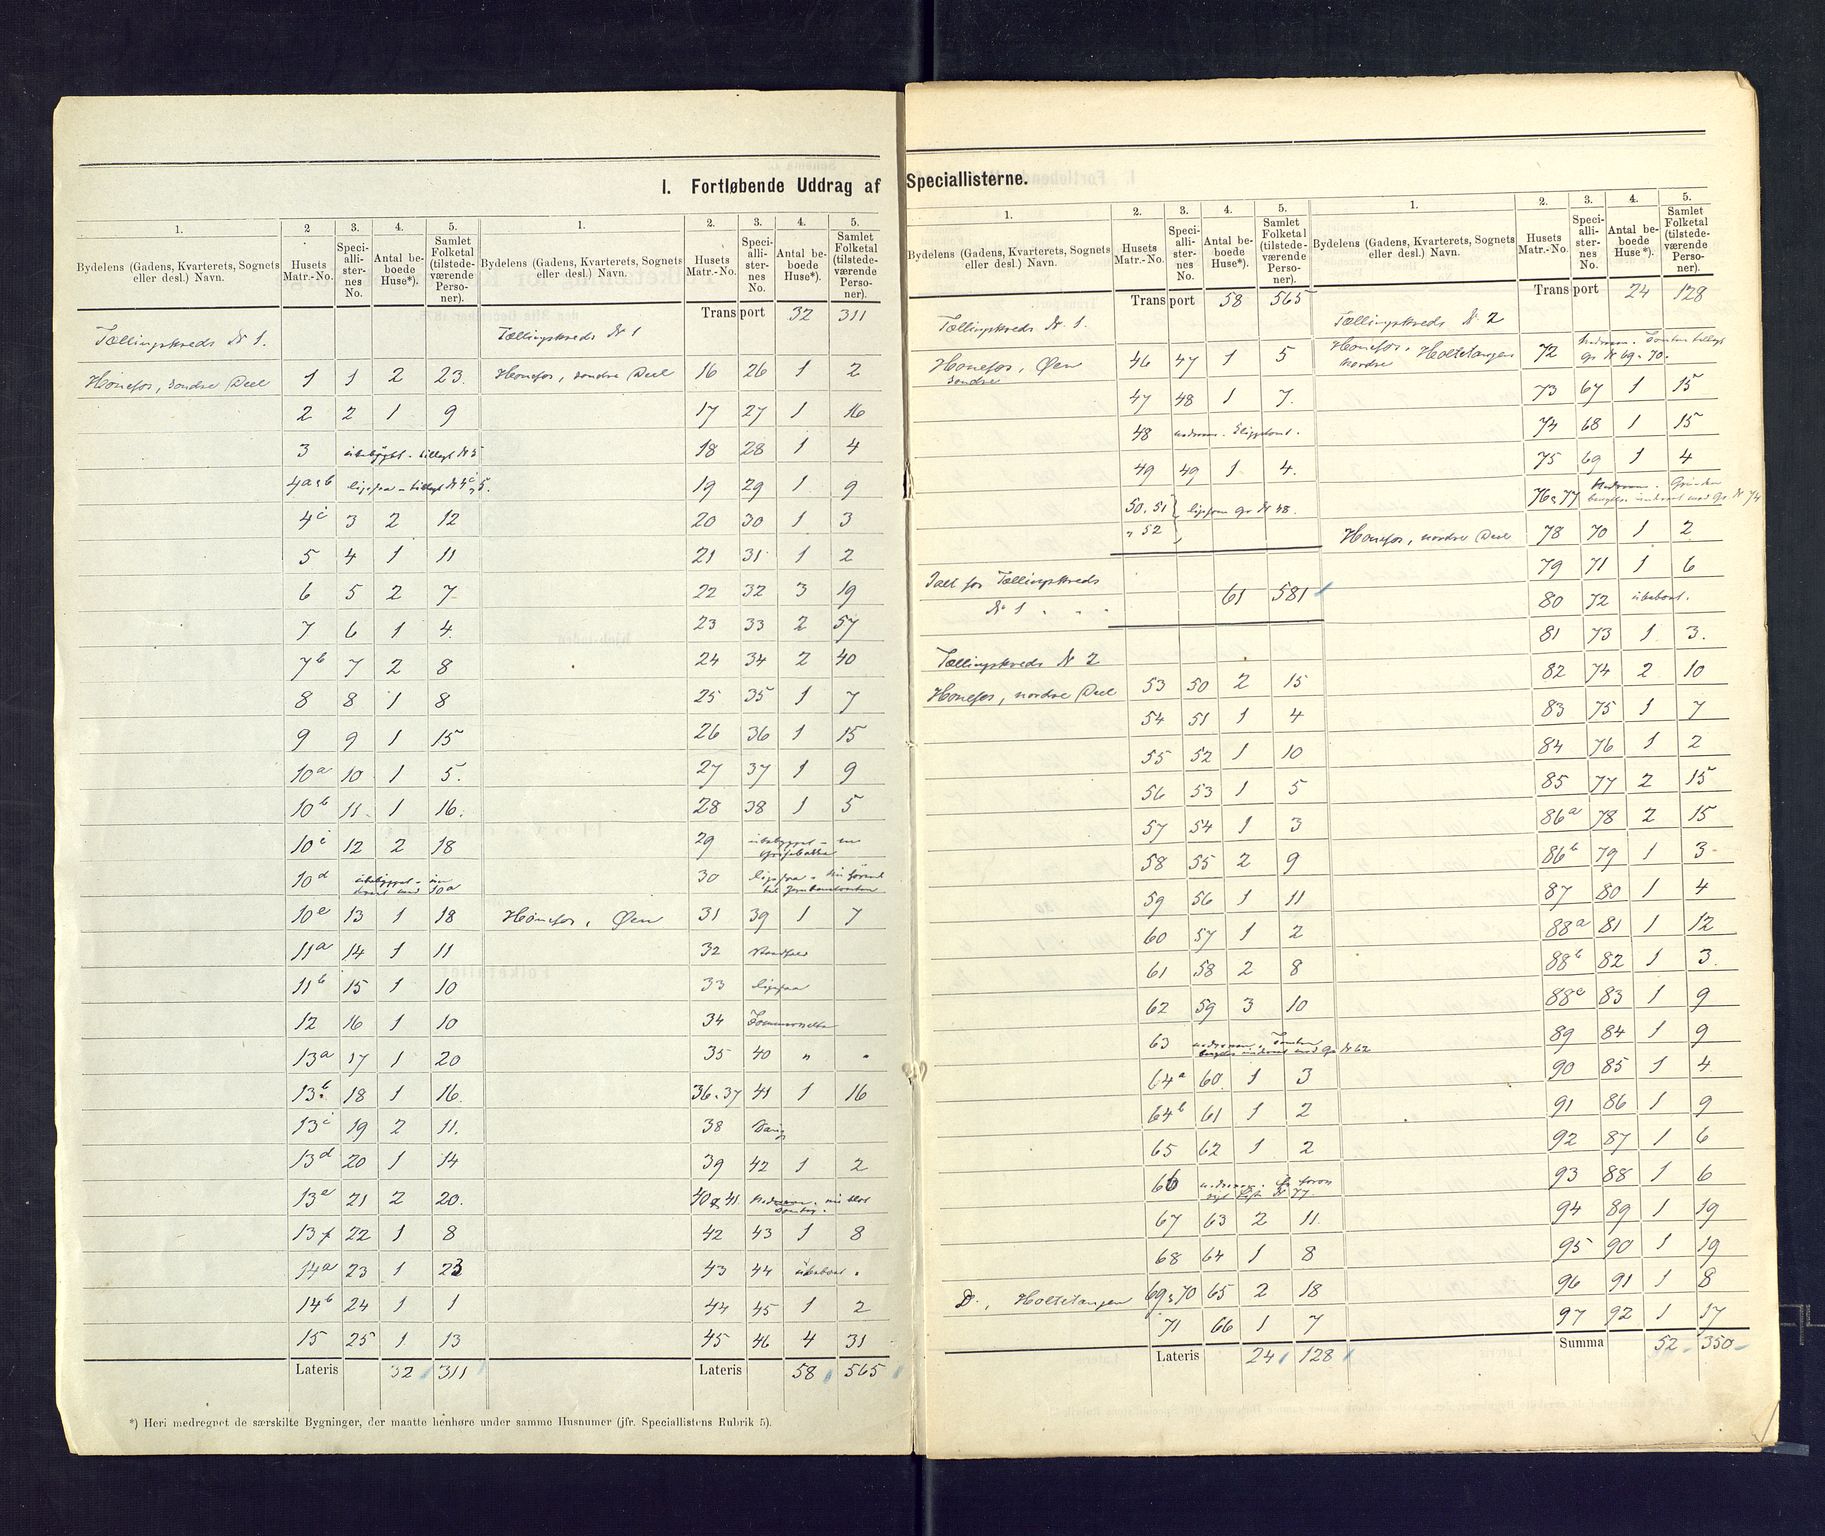 I. Fortløbende Uddrag af Speciallisterne.
1. 2 3. 4. 5.
Bydelens (Gadens, Kvarterets, Sognets eller desl.) Navn. Husets Matr.-No. Speciallisternes No. Antal beboede Huse*). Samlet Folketal (tilstedeværende Personer).
Tællingskreds No 1.
Hønefos, søndre Deel 1 1 2 23.
2 2 1 9
3 ubebygget - tillagt No 5
4a & b ligesaa - tillagt No 4c & 5.
4c 3 2 12
5 4 1 11
6 5 2 7
7 6 1 4.
7b 7 2 8
8 8 1 8
9 9 1 15
10a 10 1 5.
10b 11 1 16.
10c 12 2 18
10d ubebygget - 10a
10e 13 1 18
11a 14 1 11
11b 15 1 10
12 16 1 10
13a 17 1 20
13b 18 1 16.
13c 19 2 11.
13d 20 1 14
13e 21 2 20.
13f 22 1 8
14a 23 1 23
14b 24 1 1
15 25 1 13
Lateris 32 311
*) Heri medregnet de særskilte Bygninger, der maatte henhøre under samme Husnumer (jfr. Speciallistens Rubrik 5).
1. 2. 3. 4. 5.
Bydelens (Gadens, Kvarterets, Sognets eller desl.) Navn. Husets Matr.-No. Speciallisternes No. Antal beboede Huse*). Samlet Folketal (tilstedeværende Personer).
Transport 32 311
Tællingskreds No 1
Hønefos, søndre Deel 16 26 1 2
17 27 1 16
18 28 1 4
19 29 1 9
20 30 1 3
21 31 1 2
22 32 3 19
23 33 2 57
24 34 2 40
25 35 1 7
26 36 1 15
27 37 1 9
28 38 1 5
29 ubebygget -
30 ligesaa - henhørende til Jernbanetomten
Hønefos, Øen 31 39 1 7
32
33 ligesaa
34
35 40 " "
36 & 37 41 1 16
38
39 42 1 2
40 & 41
42 43 1 8
43 44 ubeboet.
44 45 1 2
45 46 4 31
Lateris 58 565
1. 2. 3. 4. 5.
Bydelens (Gadens, Kvarterets, Sognets eller desl.) Navn. Husets Matr.-No. Speciallisternes No. Antal beboede Huse*). Samlet Folketal (tilstedeværende Personer).
Transport 58 565
Tællingskreds No 1.
Hønefos, Øen søndre 46 47 1 5
47 48 1 7.
48
49 49 1 4.
50. 51 & 52 ligesom Gr No 48.
Ialt for Tællingskreds No 1 . . . 61 581
Tællingskreds No 2
Hønefos, nordre Deel 53 50 2 15
54 51 1 4
55 52 1 10
56 53 1 5
57 54 1 3
58 55 2 9
59 56 1 11
60 57 1 2
61 58 2 8
62 59 3 10
63 nedreven. Tomten benyttes underet med Gr No 62
64a 60. 1 3
64b 61 1 2
65 62 1 2
66 nedreven. No 77
67 63 2 11.
68 64 1 8
Do, Holtetangen 69 & 70 65 2 18
71 66 1 7
Lateris 24 128
1. 2. 3. 4. 5.
Bydelens (Gadens, Kvarterets, Sognets eller desl.) Navn. Husets Matr.-No. Speciallisternes No. Antal beboede Huse*). Samlet Folketal (tilstedeværende Personer).
Transport 24 128
Tællingskreds No 2
Hønefos, nordre Holtetangen 72 nedreven. Tomten tillagt Gr No 69 & 70.
73 67 1 15
74 68 1 15
75 69 1 4
76 & 77 nedreven. Grunden benyttes underet med Gr No 74
Hønefos, nordre Deel 78 70 1 2
79 71 1 6
80 72 ubeboet.
81 73 1 3.
82 74 2 10
83 75 1 7
84 76 1 2
85 77 2 15
86a 78 2 15
86b 79 1 3
87 80 1 4
88a 81 1 12
88b 82 1 3.
88c 83 1 9
89 84 1 9
90 85 1 4
91 86 1 9
92 87 1 6
93 88 1 6
94 89 1 19
95 90 1 19
96 91 1 8
97 92 1 17
Summa 52 350